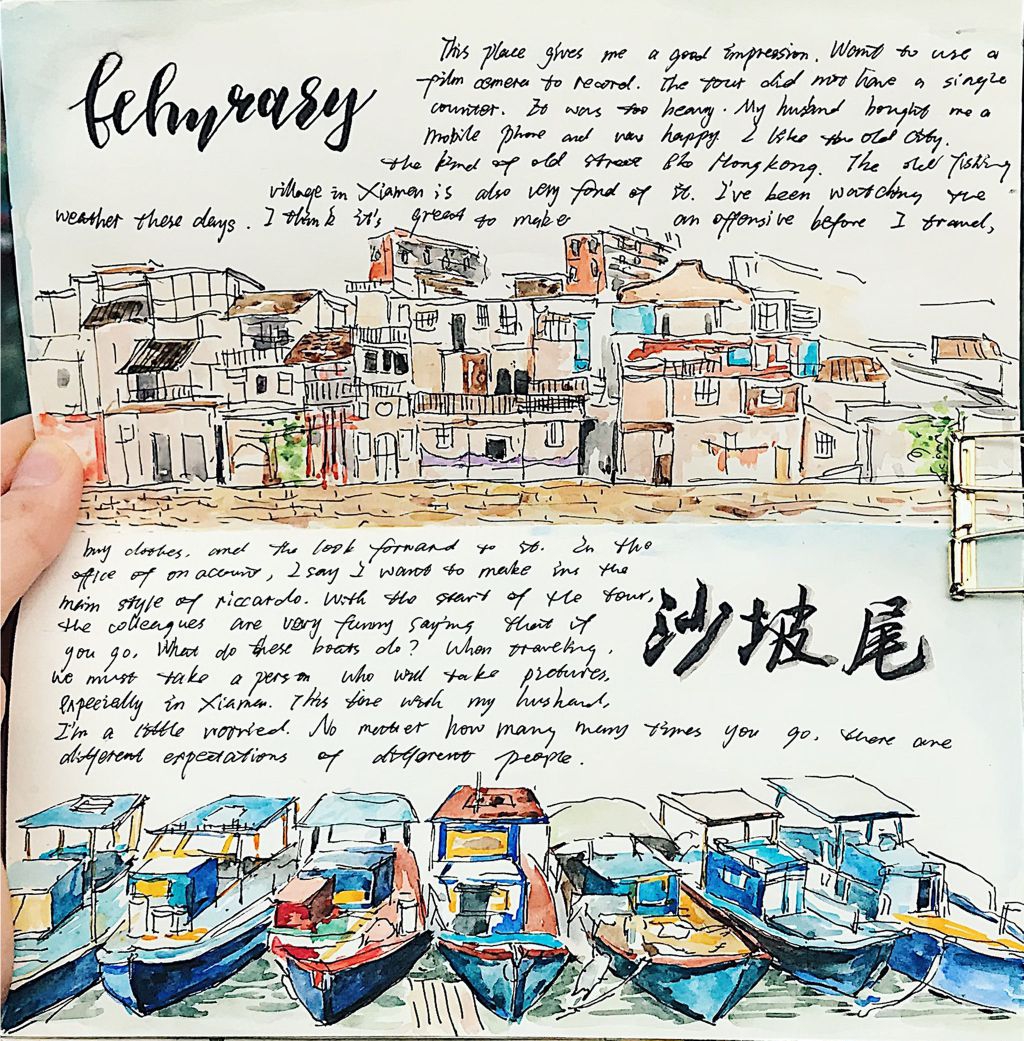 febuyrasy
This place gives me a good impression. Want to use a
film camera to record. The tour did not have a single
counter. It was too heavy. My husband bought me a
mobile phone and was happy. I like the old city.
the kind of old street like Hongkong. The old fishing
village in Xiamen is also very fond of it. I've been watching the
weather these days. I think it's great to make an offensive before I travel,
buy clothes, and the look forward to it. In the
office of on account, I say I want to make ins the
main style of riccardo. With the start of the tour,
the colleagues are very funny saying that if
you go, What do these boats do? When traveling,
we must take a person who will take pictures,
especially in Xiamen. This time with my husband,
I'm a little worried. No matter how many many times you go, there are
different expectations of different people.
沙坡尾